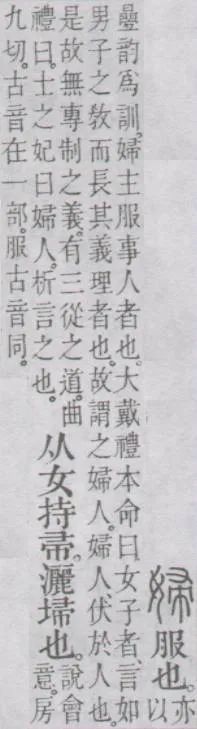 婦服也。亦
以
曡韵爲訓。婦主服事人者也。大戴禮本命曰、女子者、言如
男子之敎而長其義理者也。故謂之婦人。婦人、伏於人也。
是故無專制之義。有三從之道。曲
禮曰。士之妃曰婦人。析言之也。
从女持帚。灑埽也。說會
意。房
九切。古音在一部。服古音同。